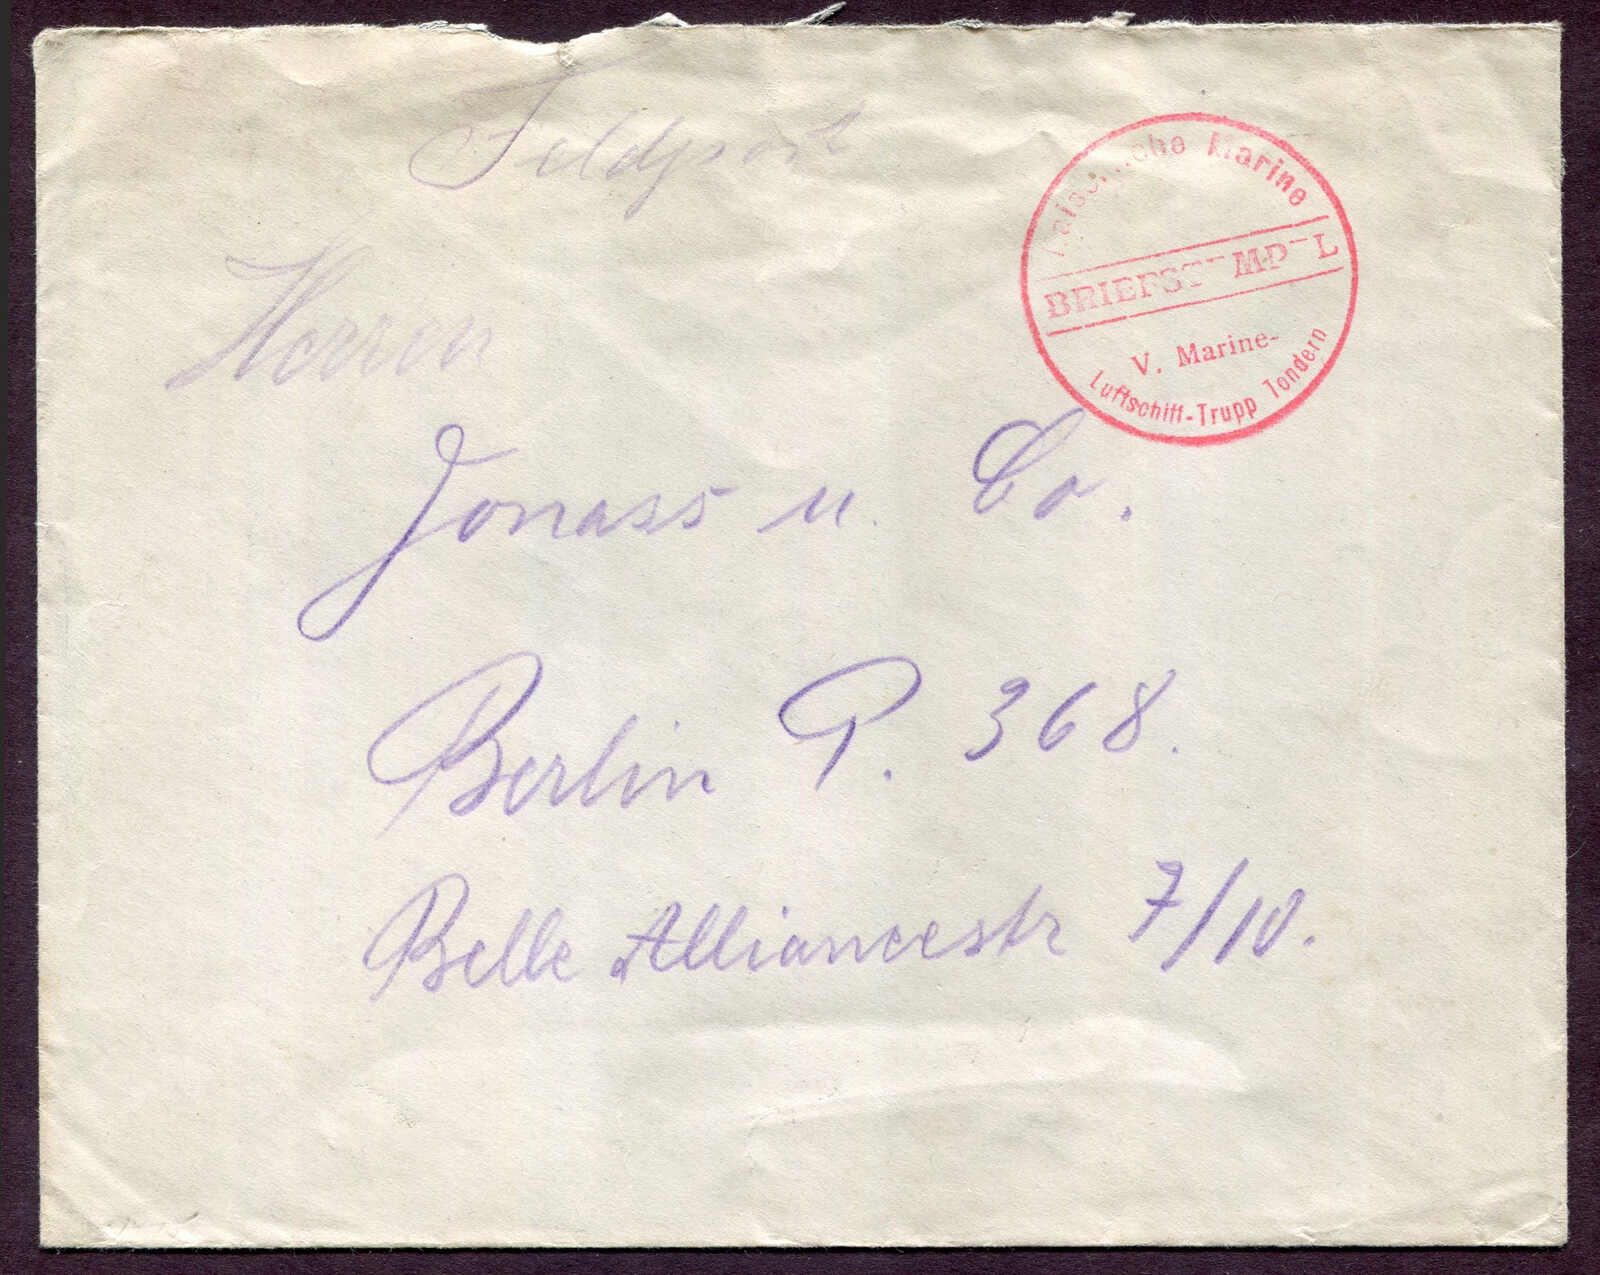 Feldpost
Kaiserliche Marine
BRIEFSTEMPEL
V. Marine-
Luftschiff-Trupp Tondern
Herren
Jonass u. Co.
Berlin P. 368.
Belle Alliancestr 7/10.